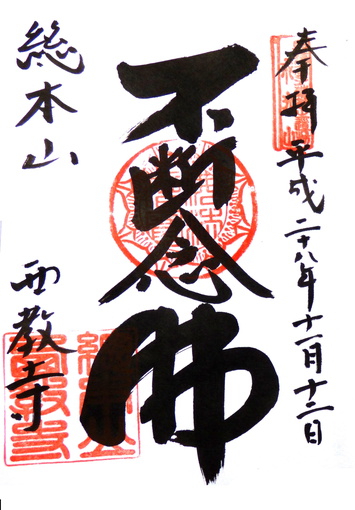 奉拝 平成二十八年十一月十二日
不断念佛
総本山 西教寺